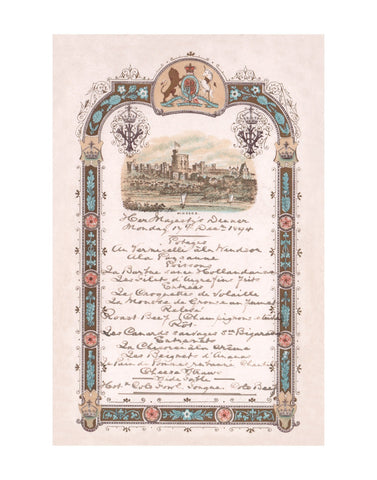 WINDSOR.
Her Majesty's Dinner
Monday 17th Decr 1894
Potages
Au Vermicelle à la Windsor
A la Paysanne
Poissons
La Barbue sauce Hollandaise
Les Filets d'Aigrefin frits
Entrées
Les Croquettes de Volaille
Relevé
Roast Beef (Champignons
Rôt.
Les Canards sauvages sce Bigarade
Entremêts
La Chicorée à la Crème
Les Beignets d'Ananas
Side Table
Hot & Cold Fowl. Tongue. Cold Beef